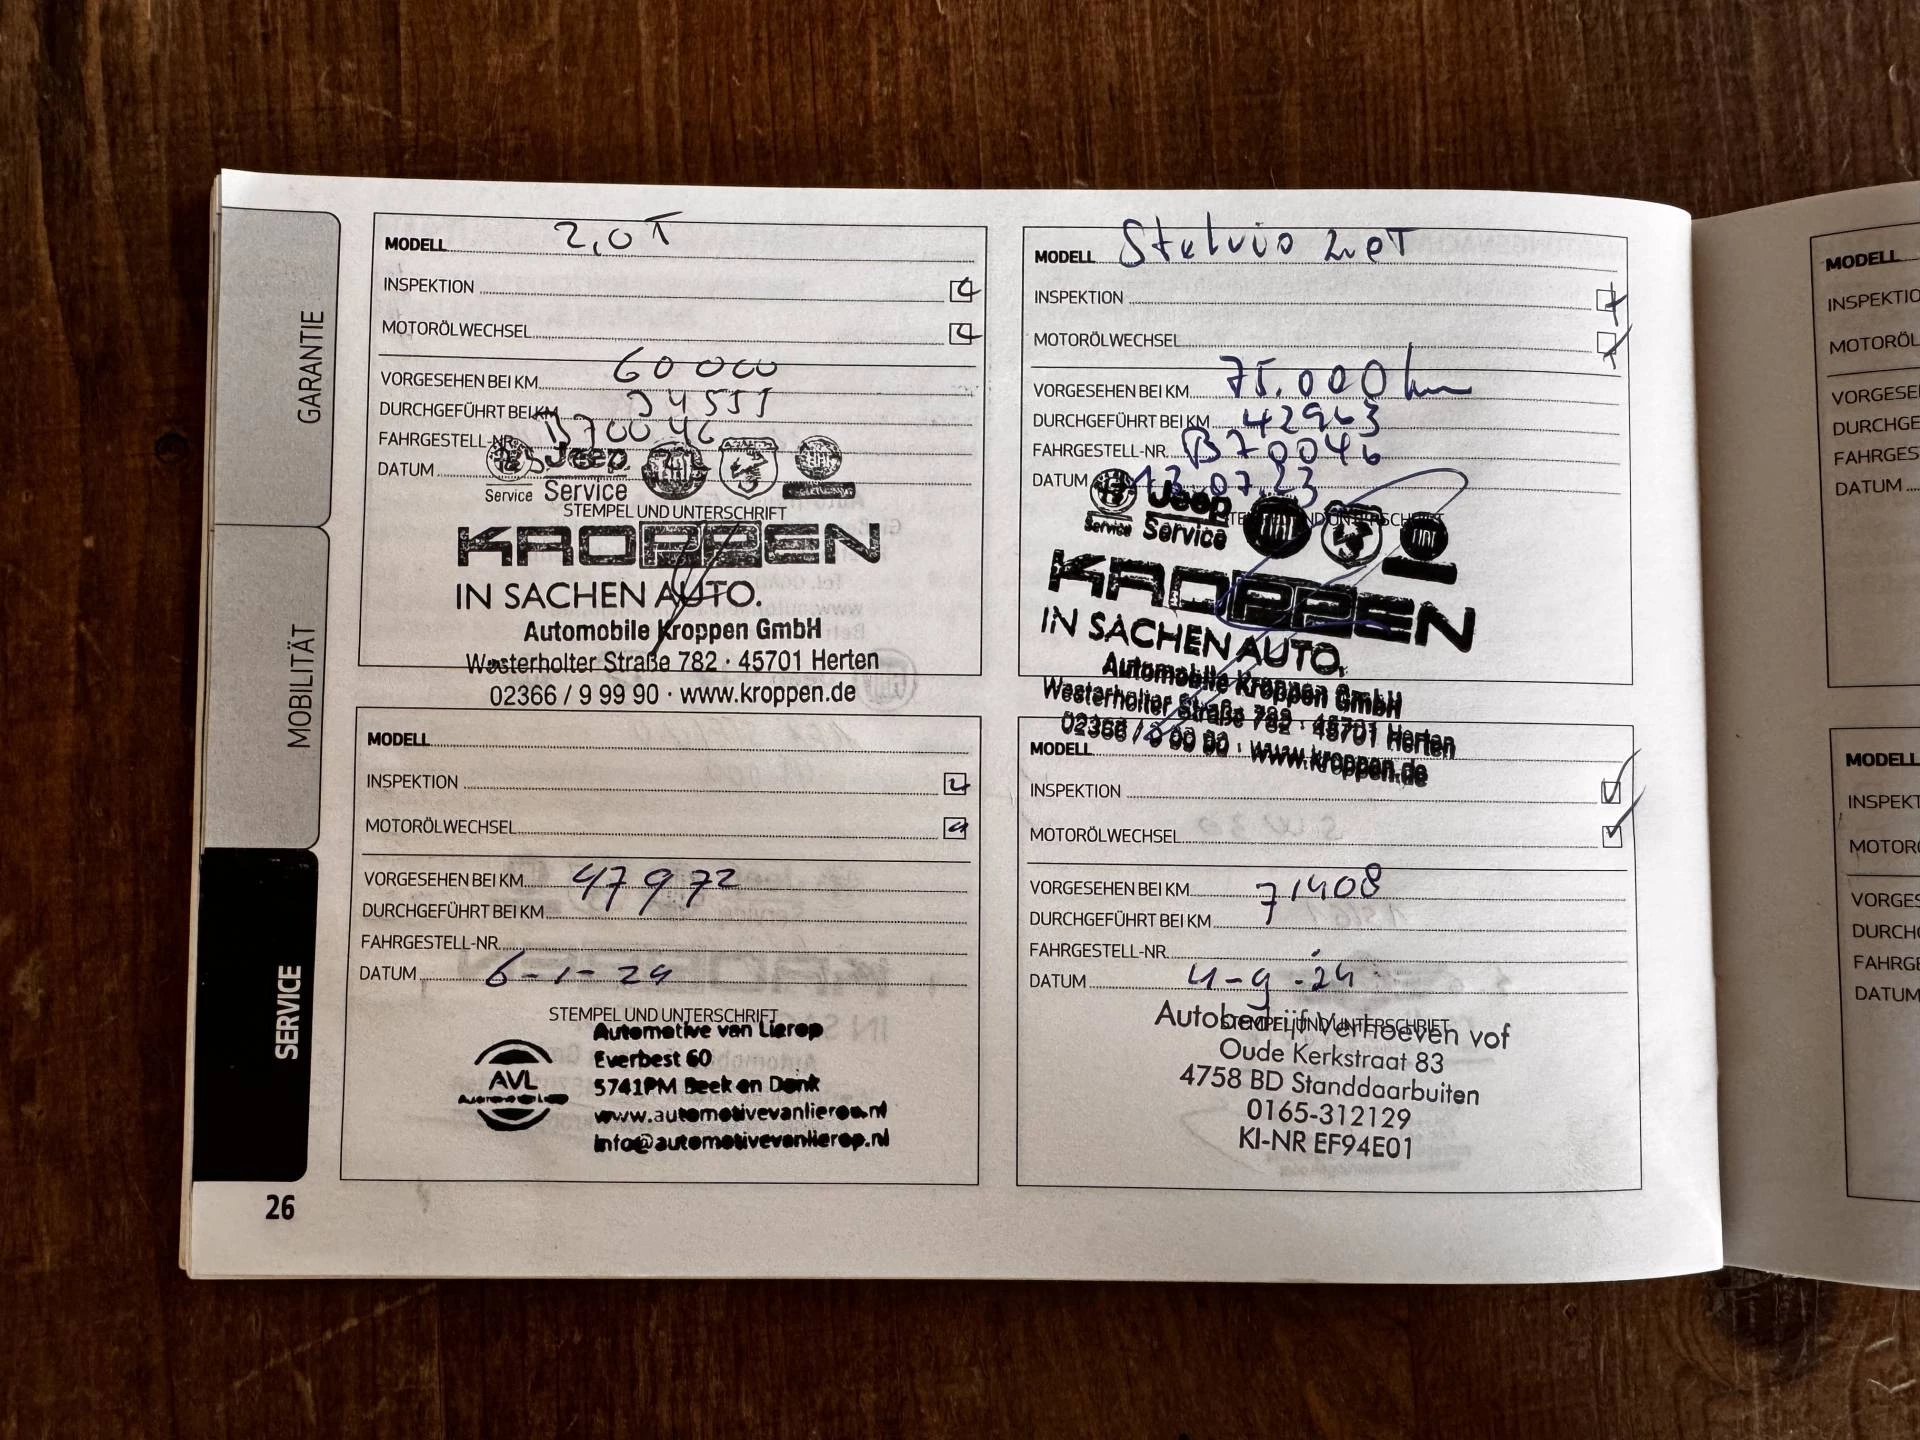 GARANTIE
MOBILITÄT
SERVICE
26
MODELL 2,0 T
INSPEKTION
MOTORÖLWECHSEL
VORGESEHEN BEI KM 60 000
DURCHGEFÜHRT BEI KM
FAHRGESTELL-NR. B70046
DATUM
Service
Jeep
Service
STEMPEL UND UNTERSCHRIFT
KROPPEN
IN SACHEN AUTO.
Automobile Kroppen GmbH
Westerholter Straße 782 · 45701 Herten
02366 / 9 99 90 · www.kroppen.de
MODELL Stelvio 2.0T
INSPEKTION
MOTORÖLWECHSEL
VORGESEHEN BEI KM 75.000 km
DURCHGEFÜHRT BEI KM 42963
FAHRGESTELL-NR. B70046
DATUM 13.07.23
Service
Jeep
Service
FIAT
STEMPEL UND UNTERSCHRIFT
KROPPEN
IN SACHEN AUTO.
Automobile Kroppen GmbH
Westerholter Straße 782 · 45701 Herten
02366 / 9 99 90 · www.kroppen.de
MODELL
INSPEKTION
MOTORÖLWECHSEL
VORGESEHEN BEI KM 47972
DURCHGEFÜHRT BEI KM
FAHRGESTELL-NR.
DATUM 6-1-24
STEMPEL UND UNTERSCHRIFT
AVL
Automotive van Lierop
Everbest 60
5741PM Beek en Donk
www.automotivevanlierop.nl
info@automotivevanlierop.nl
MODELL
INSPEKTION
MOTORÖLWECHSEL
VORGESEHEN BEI KM 71408
DURCHGEFÜHRT BEI KM
FAHRGESTELL-NR.
DATUM 4-9-24
STEMPEL UND UNTERSCHRIFT
Autobedrijf Verhoeven vof
Oude Kerkstraat 83
4758 BD Standdaarbuiten
0165-312129
KI-NR EF94E01
MODELL
INSPEKTIO
MOTORÖL
VORGESE
DURCHGE
FAHRGES
DATUM
MODELL
INSPEKT
MOTOR
VORGES
DURCH
FAHRGE
DATUM